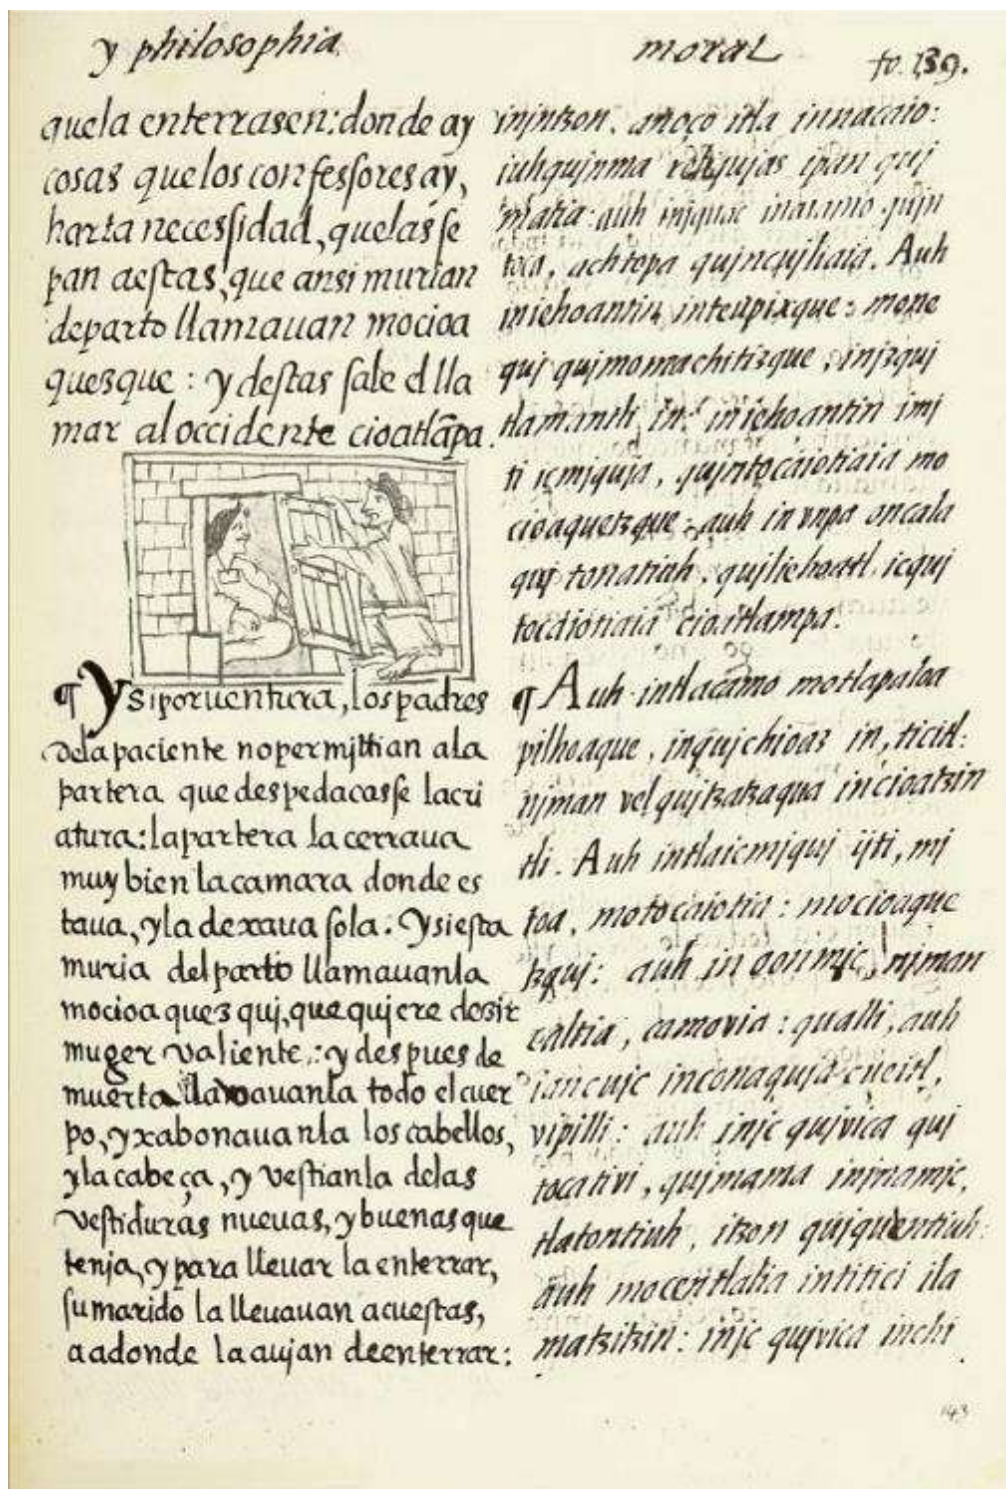 y philosophia.
moral
fo. 139.
que la enterrasen: donde ay
cosas que los confessores ay,
harta necessidad, que las se
pan aestas, que ansi murian
de parto llamauan mocioa
quezque: y destas sale el lla
mar al occidente cioatlãpa.
¶ Y si por uentura, los padres
dela paciente no permjttian ala
partera que despedacasse la cri
atura: la partera la cerraua
muy bien la camara donde es
taua, y la dexaua sola. Y si esta
muria del parto llamauanla
mocioa quezqui, que qujere dezir
muger valiente: y despues de
muerta lauauanla todo el cuer
po, y xabonauanla los cabellos,
y la cabeça, y vestianla delas
vestiduras nueuas, y buenas que
tenja, y para lleuar la enterrar,
su marido la lleuauan acuestas,
a adonde la aujan de enterrar:
injntzon. anoço itla innacaio:
iuhqujnma reliqujas ipan quj
matia: auh injquac inaiamo qujn
toca, achtopa qujncujliaia. Auh
iniehoantin, inteupixque: mone
quj qujmomachitizque, injzquj
tlamantli in. iniehoantin imj
ti icmjquja, qujntocaiotiaia mo
cioaquetzque: auh in vnpa oncala
quj tonatiuh, qujliehoatl, icquj
tocaiotiaia cioatlampa.
¶ Auh intlacamo motlapaloa
pilhoaque, inqujchioaz in, ticitl:
njman vel qujtzatzaqua incioatzin
tli. Auh intlaicmjquj ijti, mj
toa, motocaiotia: mocioaque
tzquj: auh in oonmjc, njman
caltia, camovia: qualli, auh
iancujc inconaquja cueitl,
vipilli: auh injc qujvica quj
tocativi, qujmama injnamjc,
tlatontiuh, itzon qujquentiuh:
auh mocentlalia intitici ila
matzitzin: injc qujvica inchi
143